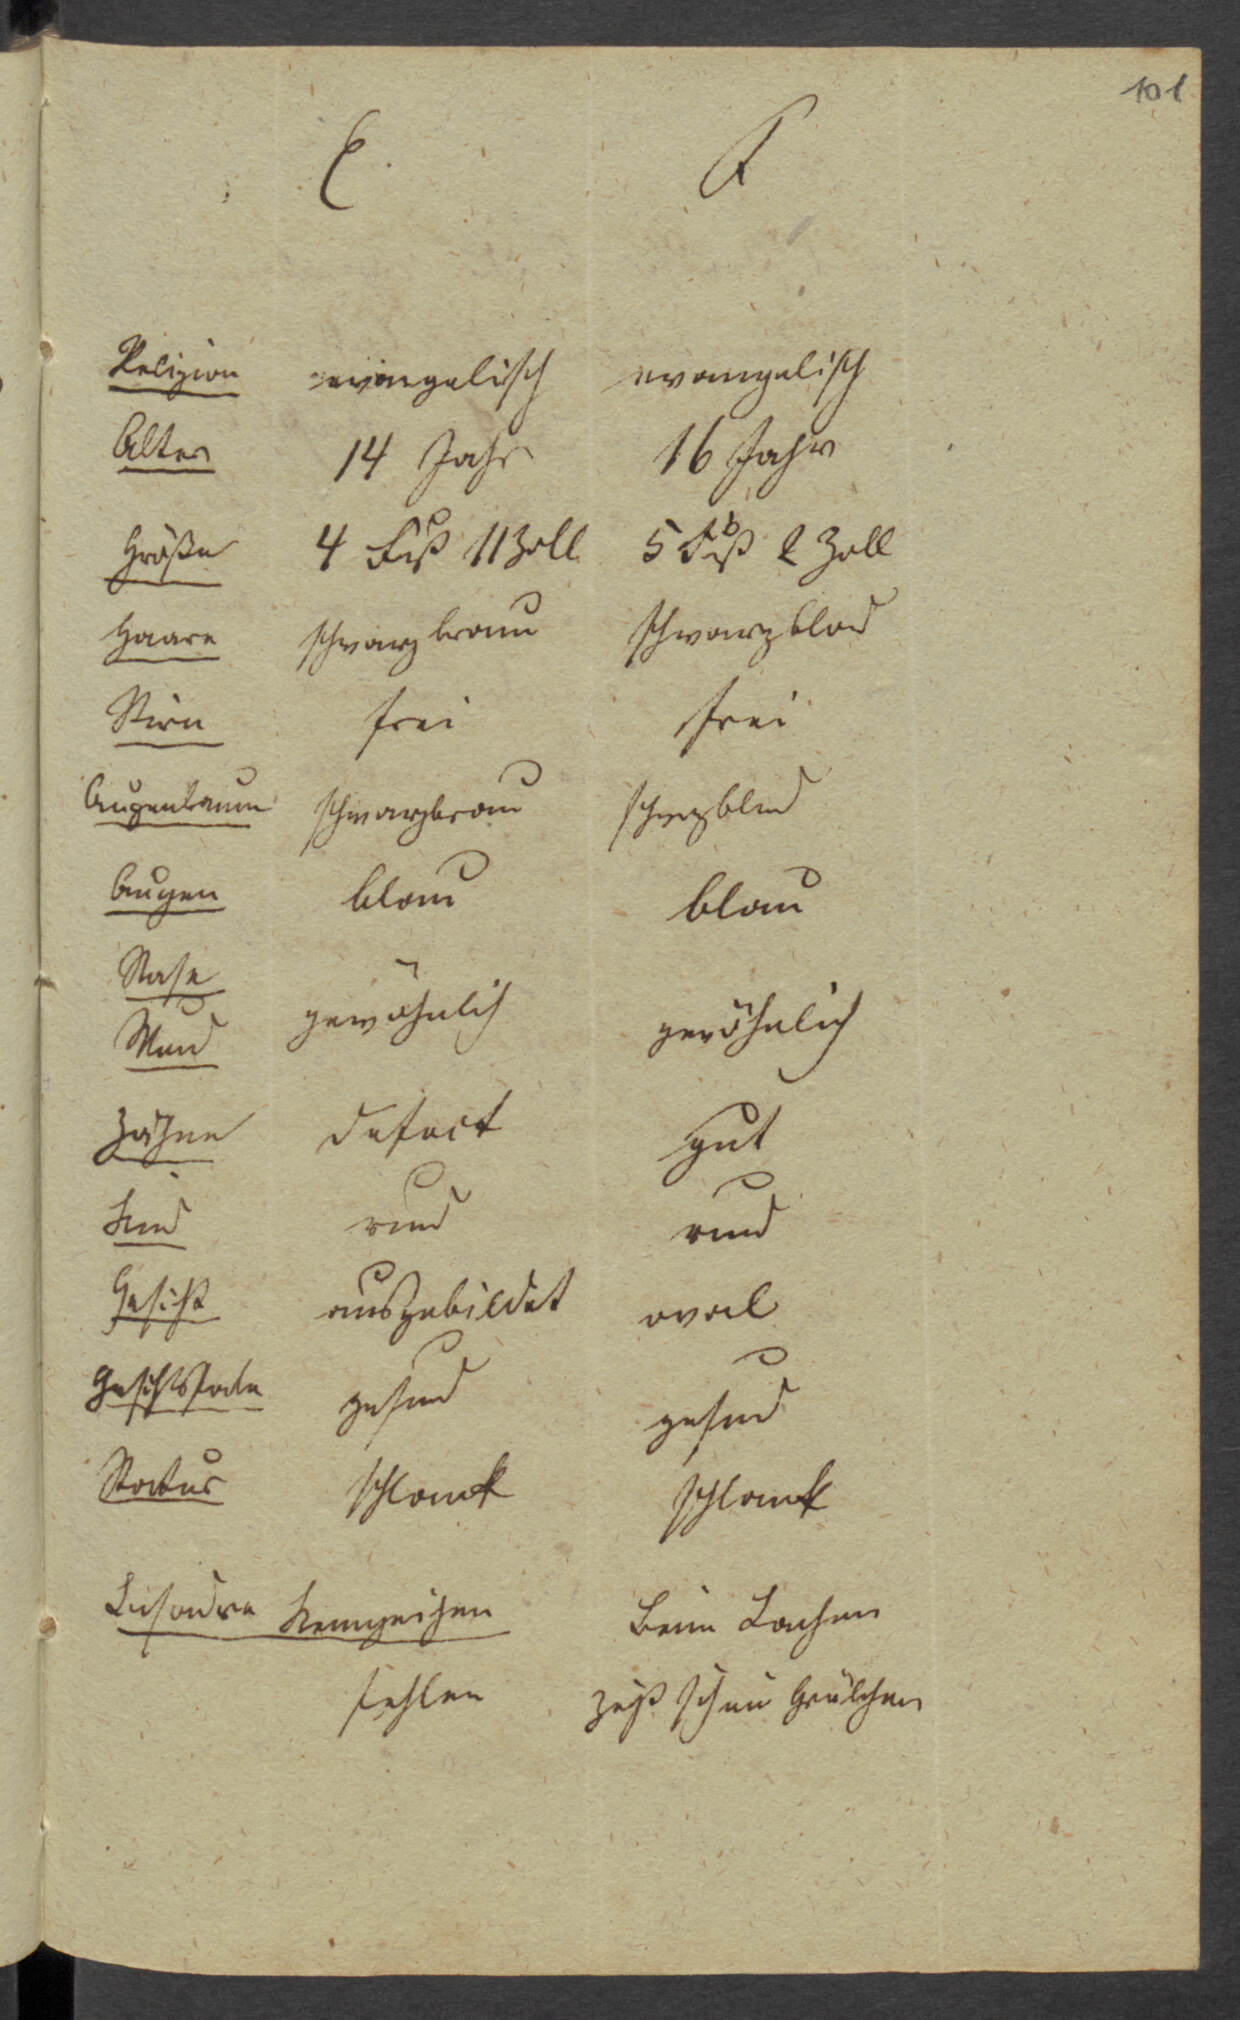 101
E. F
Religion evangelisch evangelisch
Alter 14 Jahr 16 Jahr
Größe 4 Fuß 11 Zoll 5 Fuß 2 Zoll
Haare schwarzbraun schwarzblond
Stirn frei frei
Augenbraunen schwarzbraun schwzblond
Augen blau blau
Nase
gewöhnlich gewöhnlich
Mund
Zähne defect gut
Kinn rund rund
Gesicht ausgebildet oval
Gesichtsfarbe gesund gesund
Statur schlank schlank
Besondre Kennzeichen Beim Lachen
fehlen zeigt sich ein Grübchen